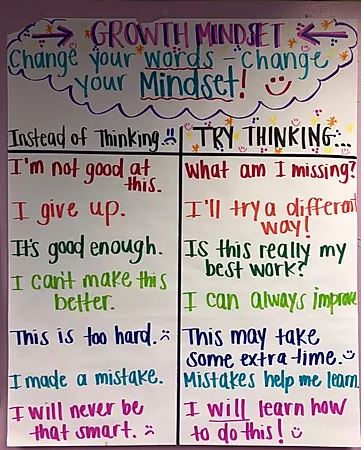 GROWTH MINDSET
Change your words - change
your Mindset!
Instead of Thinking...
TRY THINKING...
I'm not good at
this.
What am I missing?
I give up.
I'll try a different
way!
It's good enough.
Is this really my
best work?
I can't make this
better.
I can always improve
This is too hard.
This may take
some extra time.
I made a mistake.
Mistakes help me learn.
I will never be
that smart.
I will learn how
to do this!